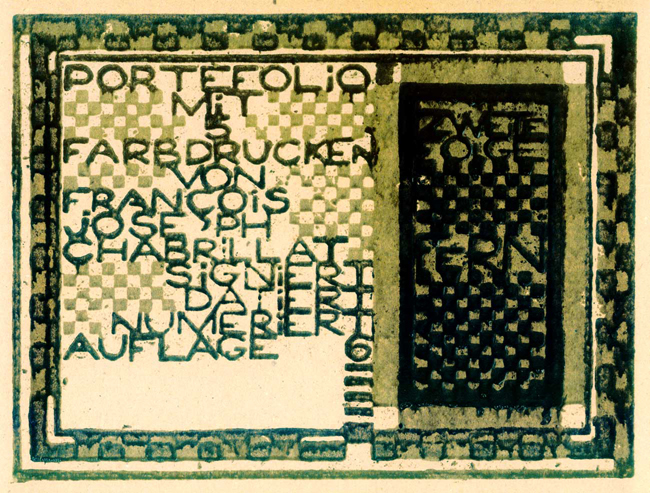 PORTEFOLiO
MiT
5
FARBDRUCKEN
VON
FRANÇOiS
JOSE'PH
CHABRiLLAT
SiGNiERT
DATiERT
NUMERiERT
AUFLAGE
ZWEiTE
FOLGE